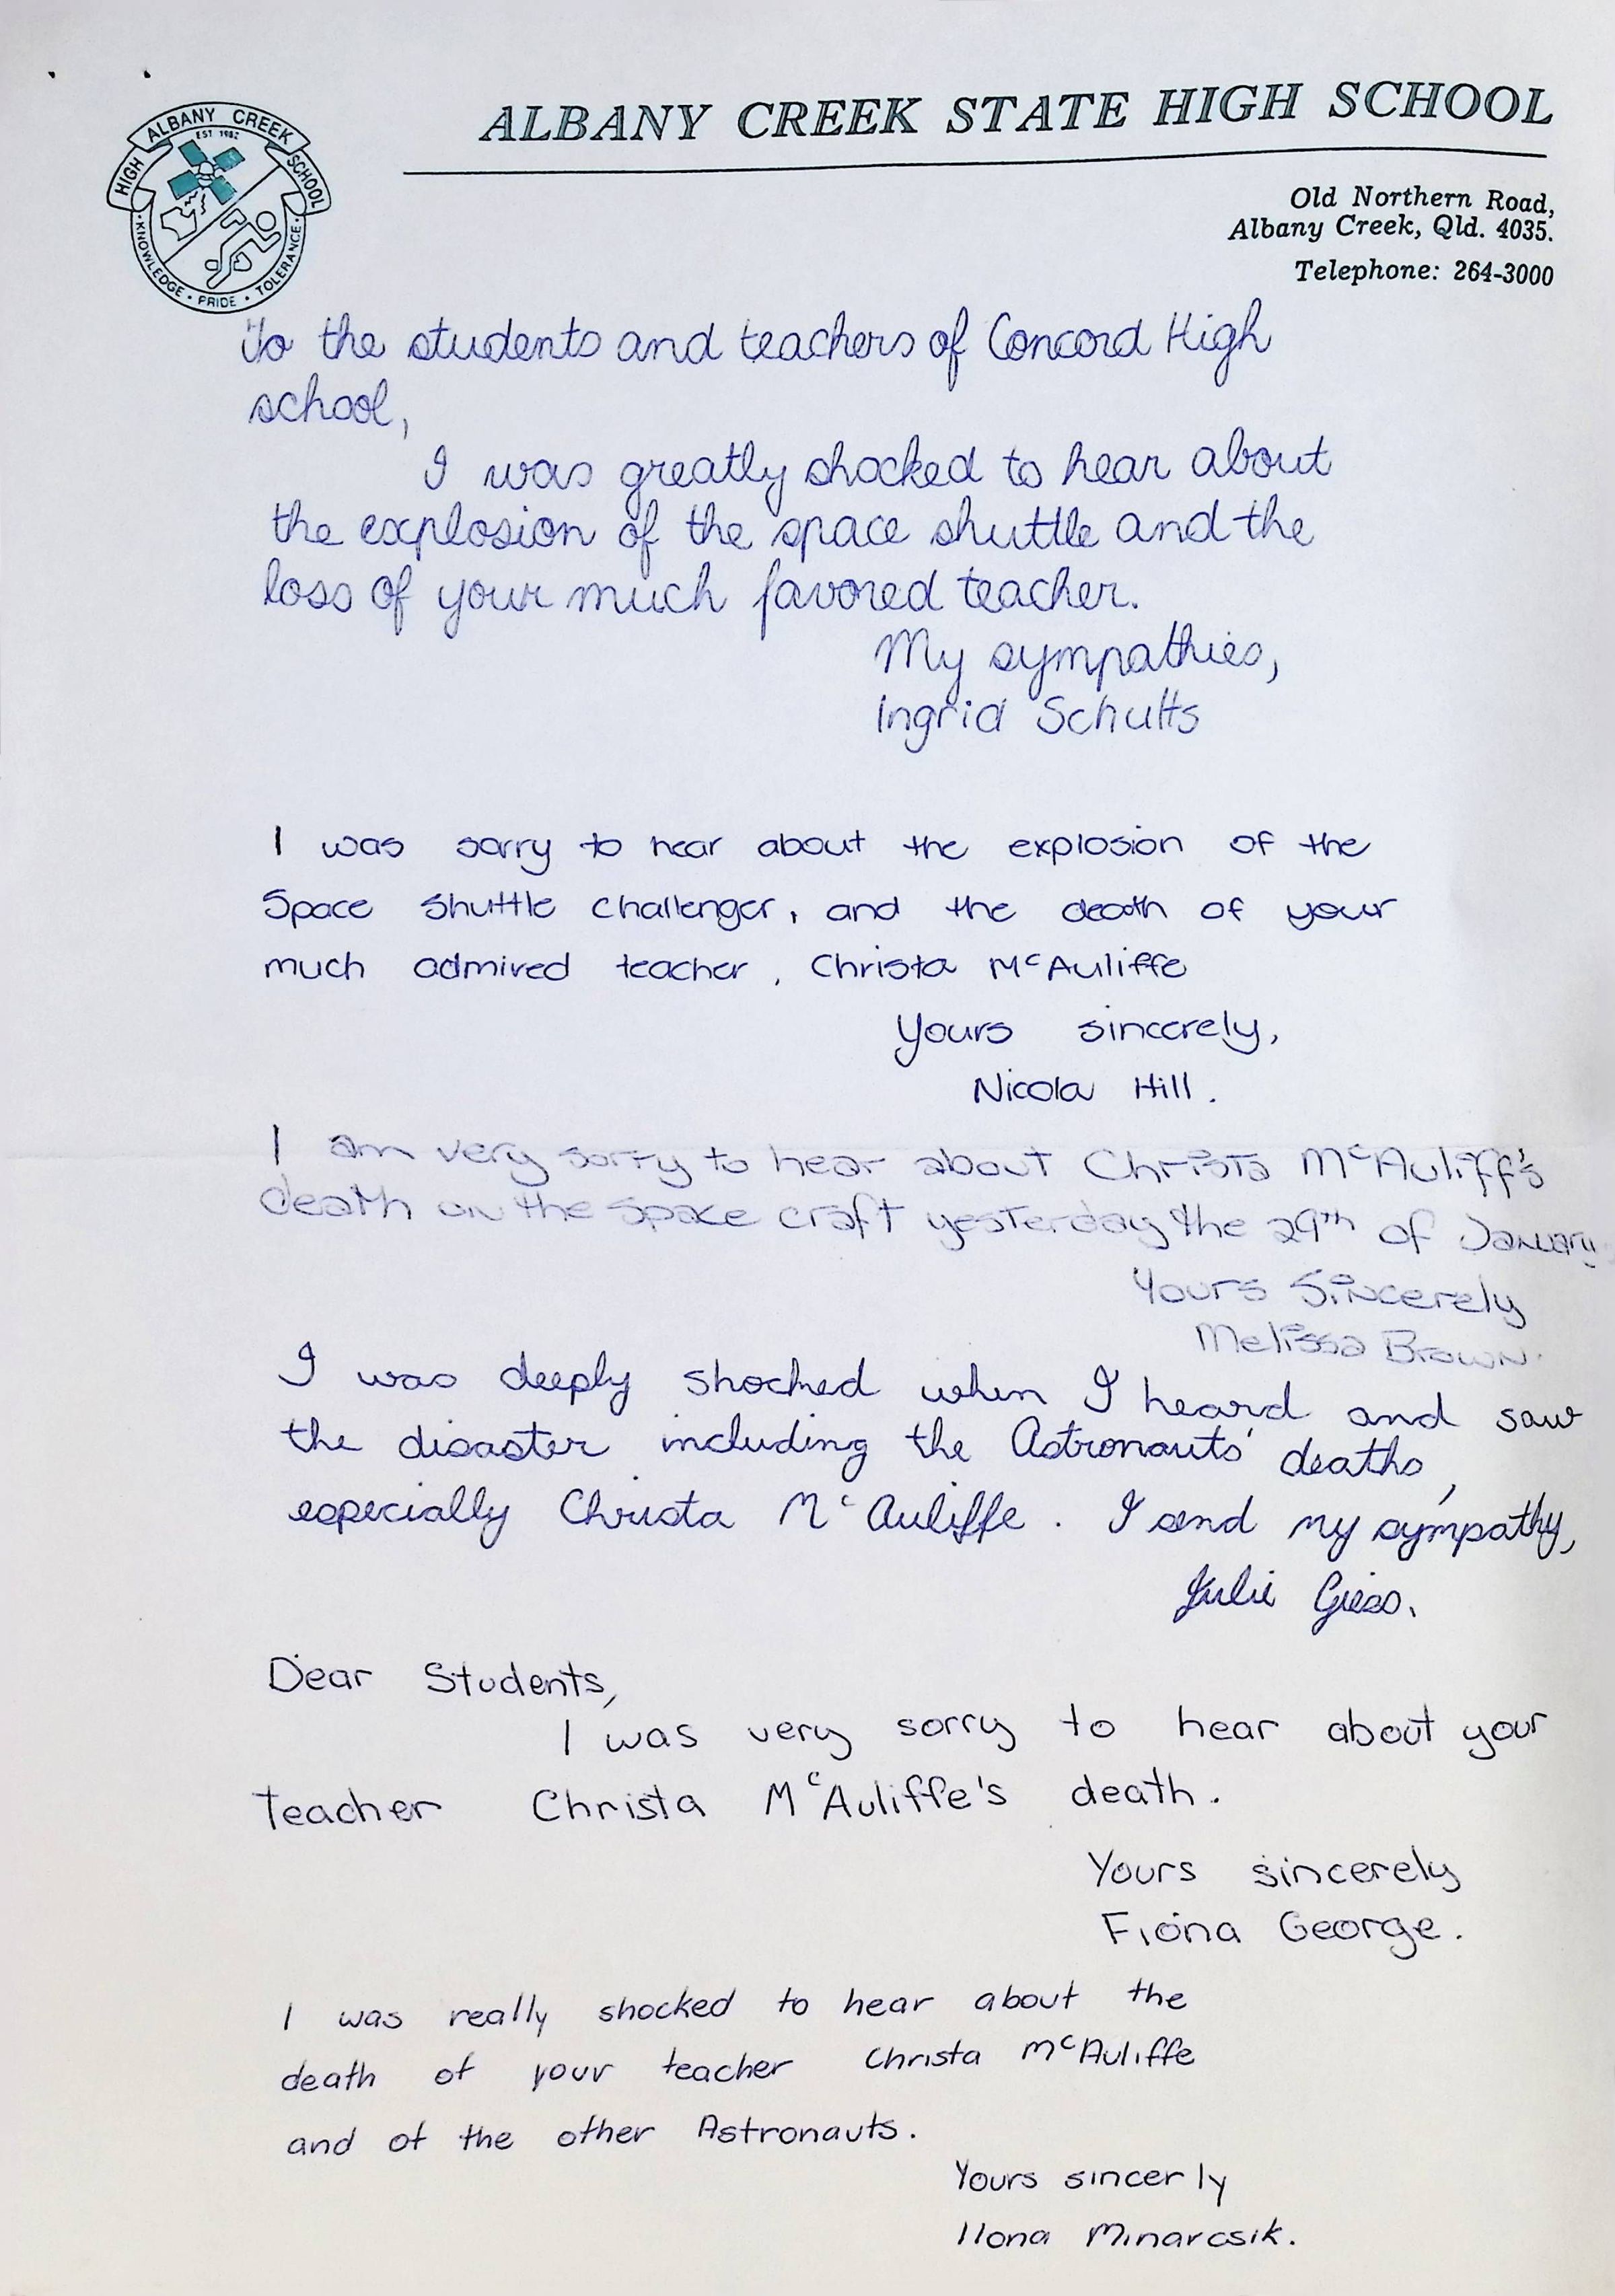 ALBANY CREEK
HIGH SCHOOL
EST 1982
KNOWLEDGE · PRIDE · TOLERANCE
ALBANY CREEK STATE HIGH SCHOOL
Old Northern Road,
Albany Creek, Qld. 4035.
Telephone: 264-3000
To the students and teachers of Concord High
school,
I was greatly shocked to hear about
the explosion of the space shuttle and the
loss of your much favored teacher.
My sympathies,
Ingrid Schults
I was sorry to hear about the explosion of the
Space Shuttle Challenger, and the death of your
much admired teacher, Christa McAuliffe
Yours sincerely,
Nicola Hill.
I am very sorry to hear about Christa McAuliff's
death on the space craft yesterday the 29th of January
Yours Sincerely
Melissa Brown.
I was deeply shocked when I heard and saw
the disaster including the Astronauts' deaths,
especially Christa McAuliffe. I send my sympathy,
Julie Giess.
Dear Students,
I was very sorry to hear about your
teacher Christa McAuliffe's death.
Yours sincerely
Fiona George.
I was really shocked to hear about the
death of your teacher Christa McAuliffe
and of the other Astronauts.
Yours sincerly
Ilona Minarcsik.